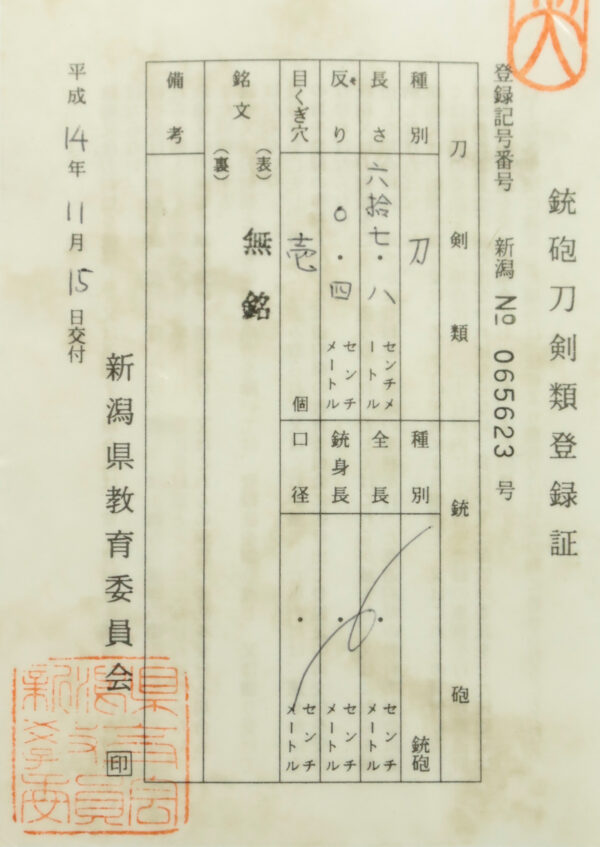 銃砲刀剣類登録証
登録記号番号 新潟 № 065623 号
刀剣類
銃砲
種別 刀
種別 銃砲
長さ 六拾七・八 センチメートル
全長 ・ センチメートル
反り 〇・四 センチメートル
銃身長 ・ センチメートル
目くぎ穴 壱 個
口径 ・ センチメートル
銘文 (表) 無銘
(裏)
備考
新潟県教育委員会 印
平成14年11月15日交付
新潟県教育委員会